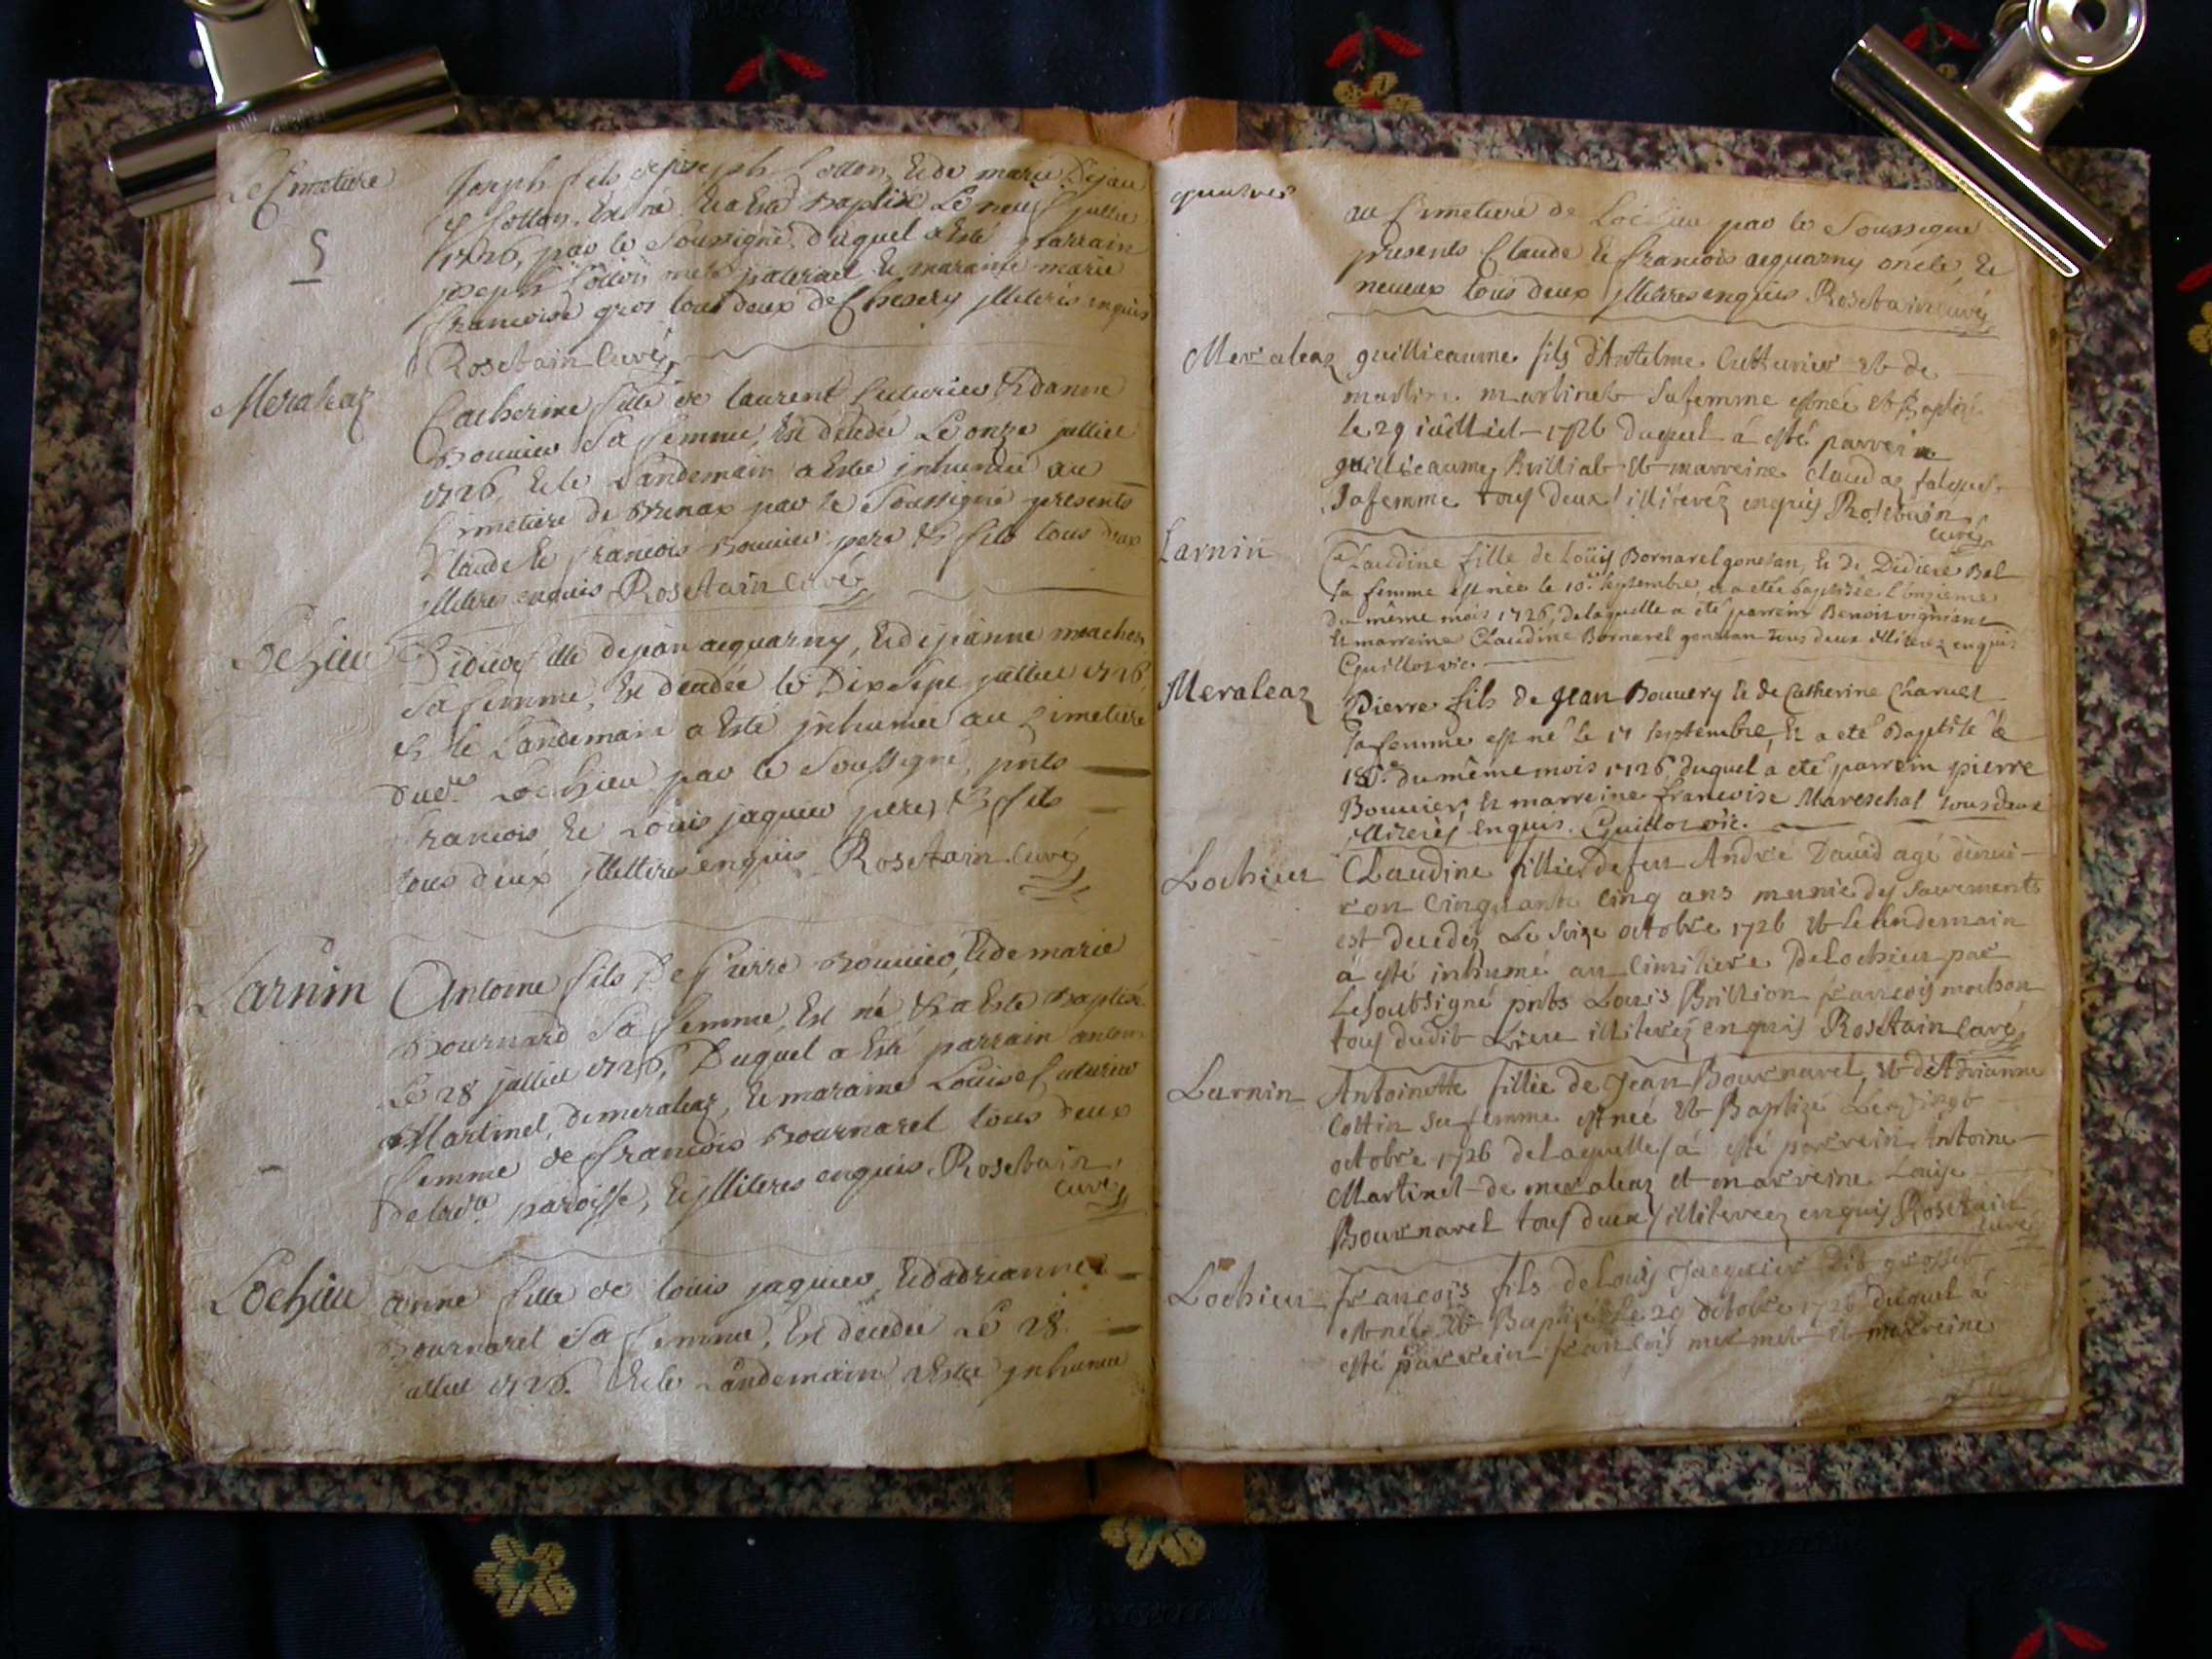 Le Cimetiere
Joseph fils de joseph Cotton, et de marie Dejau
Cotton, Est né et a Esté Baptisé Le neuf juillie
1726, par le Soussigné, duquel a Esté parrain
joseph Cotton oncle paternel et maraine marie
francoise gros tous deux de Chesery jlliteres enquis
Rosetain Curé
5
Meraleaz
Catherine fille de laurent Cuturier et danne
Bouuier Sa femme, Est décédée Le onze julliet
1726, et le Landemain a Estée jnhumée au
Cimetiere de Brenax par le Soussigné presents
Claude et francois Bouuier pere et fils tous deux
jlliteres enquis Rosetain Curé
Lochieu
Didiere fille de jean acquarny, et de jeanne machon
Sa femme, Est decedée le Dix Sept julliet 1726
et le Landemain a Esté jnhumée au Cimetiere
dudt Lochieu par le Soussigné, pnts
francois, et Louis jaquier pere, et fils
tous deux jlliteres enquis Rosetain Curé
Larnin
Antoine fils De pierre Bouuier, et de marie
Bournard Sa femme, Est né et a Esté Baptisé
Le 28 julliet 1726, Duquel a Esté parrain antoine
Martinet, de meraleaz, et maraine Louise Cuturier
femme de francois Bournarel tous deux
de ladte paroisse, et jlliteres enquis Rosetain
Curé
Lochieu
anne fille de louis jaquier, et dadrianne
Bournarel Sa femme, Est decedée Le 28
julliet 1726. et le Landemain a Estée jnhumée
au Cimetiere de Lochieu par le Soussigné
presents Claude et francois acquarny oncle, et
neueux tous deux jlliteres enquis Rosetain Curé
Meraleaz
guillieaume fils d'Antelme Cutturier et de
martine martinet sa femme est née et Baptisé
le 29 iuilliet 1726 duquel á esté parrein
guillieaume et marreine claudaz
sa femme tous deux illiterez enquis Rosetain
curé
Larnin
Claudine fille de Loüis Bornarel gonetan, et de Didiere Bal
sa femme est née le 10e septembre, et a eté baptisée l'onzieme
du même mois 1726, de laquelle a eté parrein Benoit
et marreine Claudine Bornarel gonetan tous deux illiterez enquis
Guillot vic.
Meraleaz
Pierre fils de Jean Bouuery et de Catherine Charuet
sa femme est né le 17 septembre, et a eté Baptisé le
18e du même mois 1726, duquel a eté parrein pierre
Bouuier et marreine francoise Mareschal tous deux
illiterés enquis. Guillot vic.
Lochieu
Claudine fillie de feu André Dauid agé denui-
ron Cinquante Cinq ans munie des sacrements
est decedez Le seize octobre 1726 et le lendemain
á esté inhumé au Cimitiere De Lochieu par
Le soubsigné pnts Louis Brillion francois machon
tous dudit Lieu illiterez enquis Rosetain Curé
Larnin
Antoinette fillie de Jean Bournarel, et d'Adrianne
Cottin sa femme est neé et Baptizé Le vingt
octobre 1726 de Laquelle á esté parrein Antoine
Martinet de meraleaz et marreine Louise
Bournarel tous deux illiterez enquis Rosetain
curé
Lochieu
francois fils de Louis Jacquier Dit grosset
est née et Baptizé Le 29 octobre 1726 duquel á
esté parrein francois mermet et marreine